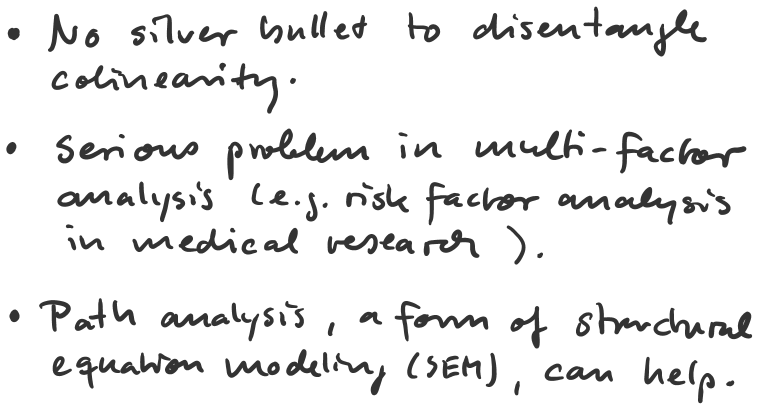 • No silver bullet to disentangle
colinearity.
• Serious problem in multi-factor
analysis (e.g. risk factor analysis
in medical research).
• Path analysis, a form of structural
equation modeling (SEM), can help.